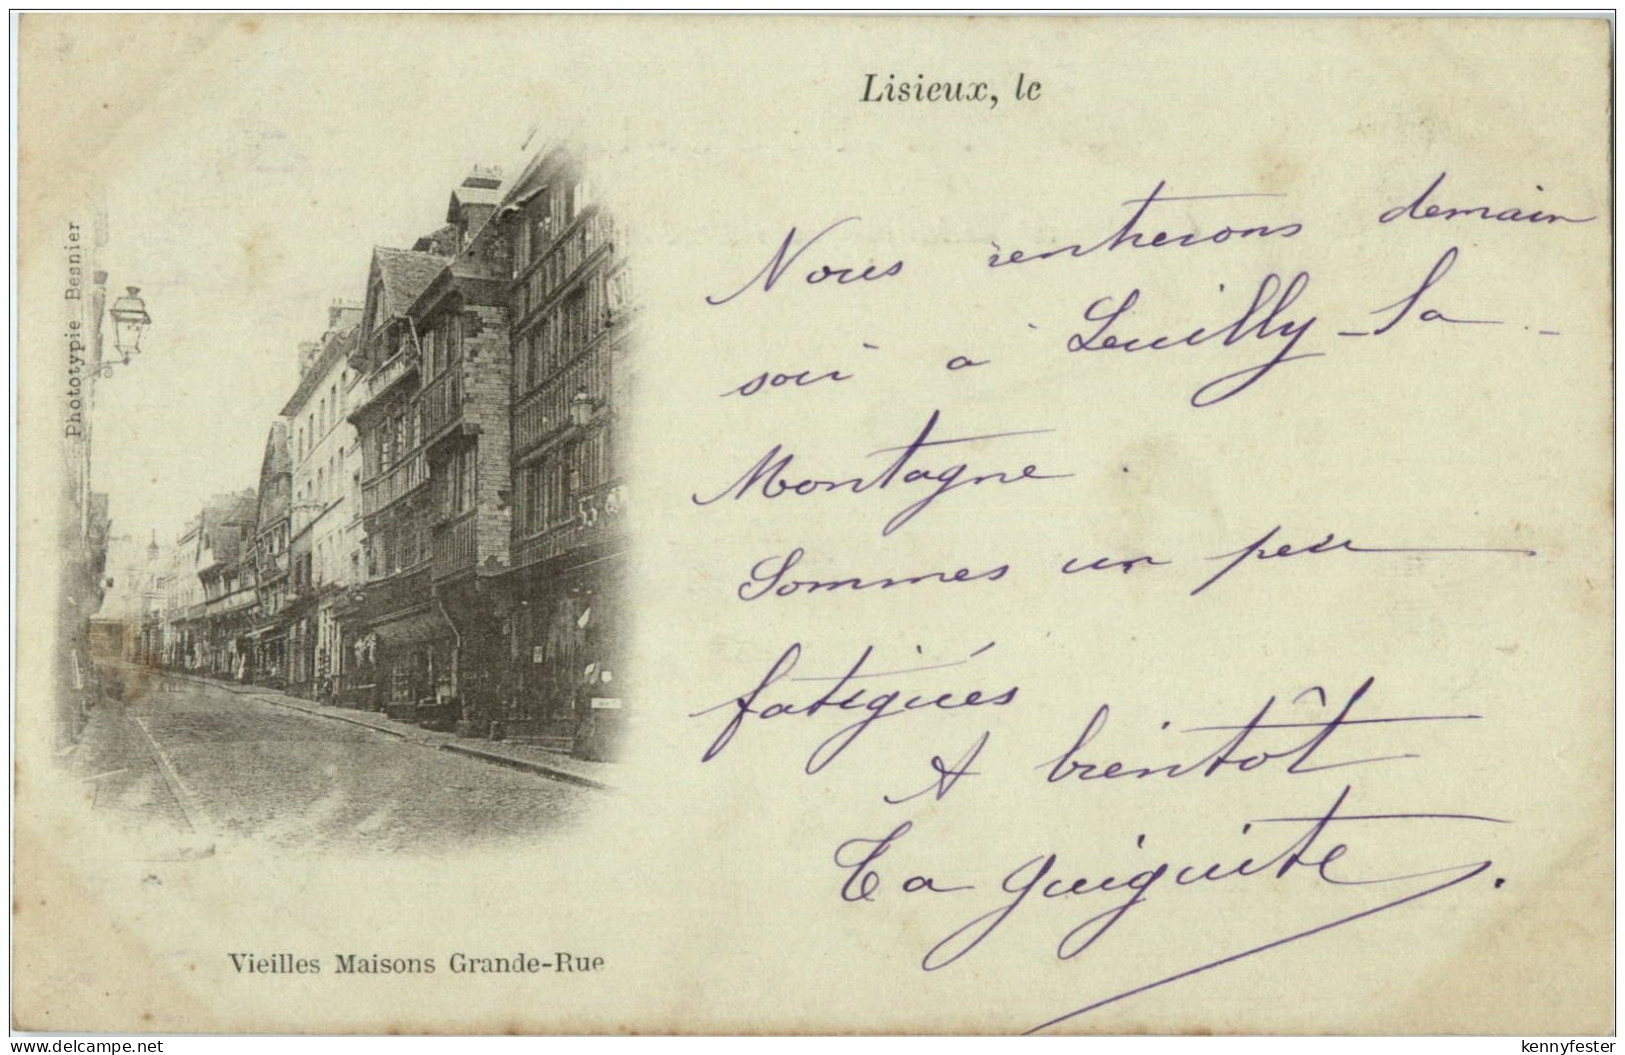 Lisieux, le
Phototypie Besnier
Nous rentrerons demain
soir à Leuilly-Sa-
Montagne.
Sommes un peu
fatigués
A bientôt
Ta guiguite.
Vieilles Maisons Grande-Rue
www.delcampe.net
kennyfester